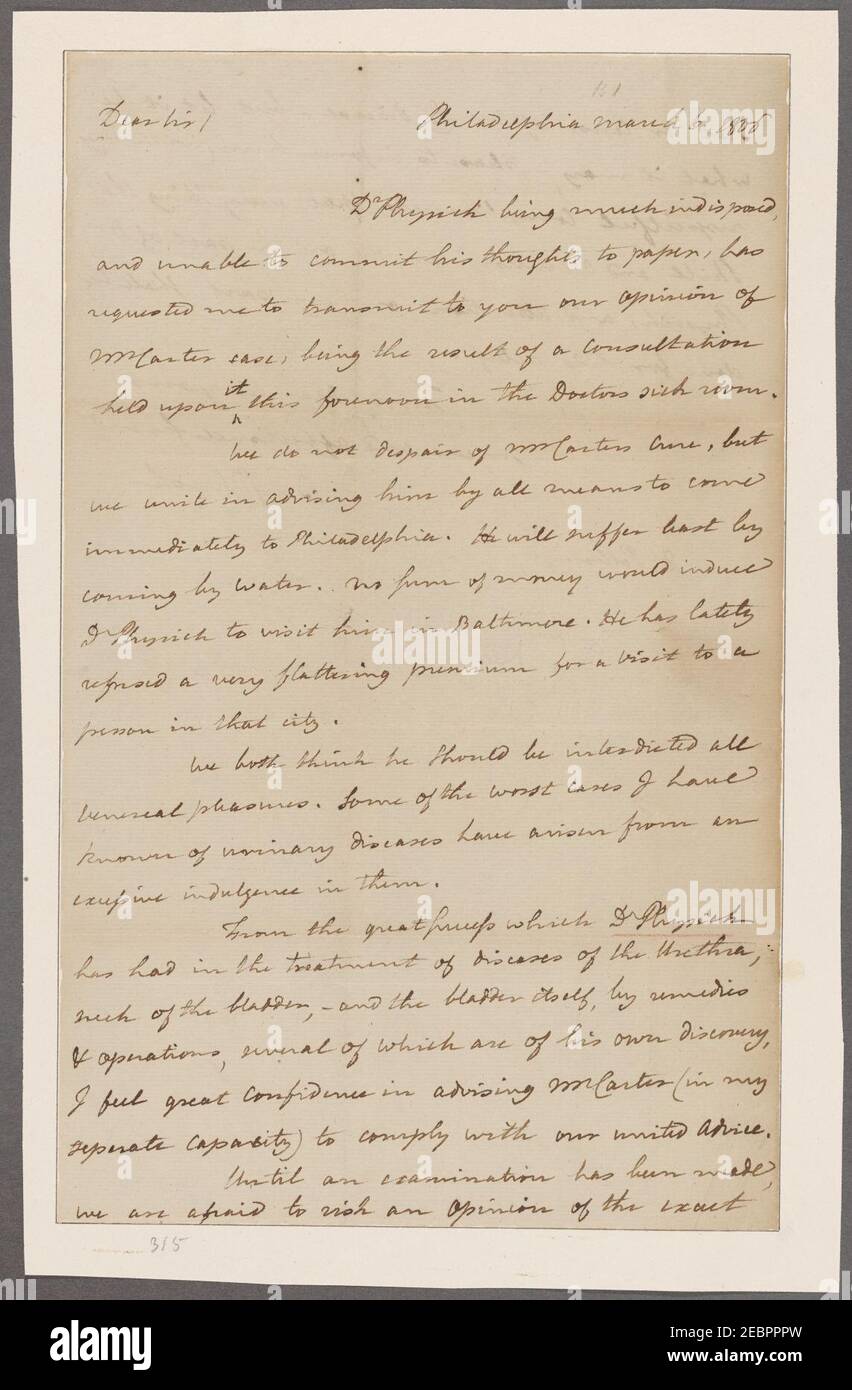 181
Dear Sir/ Philadelphia March 6. 1806
Dr Physick being much indisposed,
and unable to commit his thoughts to paper, has
requested me to transmit to you our opinion of
Mr Carters case, being the result of a consultation
held upon it this forenoon in the Doctors sick room.
We do not despair of Mr Carters cure, but
we unite in advising him by all means to come
immediately to Philadelphia. He will suffer least by
coming by water. No sum of money would induce
Dr Physick to visit him in Baltimore. He has lately
refused a very flattering premium for a visit to a
person in that city.
We both think he should be interdicted all
venereal pleasures. Some of the worst cases I have
known of urinary diseases have arisen from an
excessive indulgence in them.
From the great success which Dr Physick
has had in the treatment of diseases of the Urethra,
neck of the bladder, - and the bladder itself, by remedies
& operations, several of which are of his own discovery,
I feel great confidence in advising Mr Carter (in my
seperate capacity) to comply with our united advice.
Until an examination has been made,
we are afraid to risk an opinion of the exact
315
alamy
alamy
Image ID: 2EBPPPW
www.alamy.com